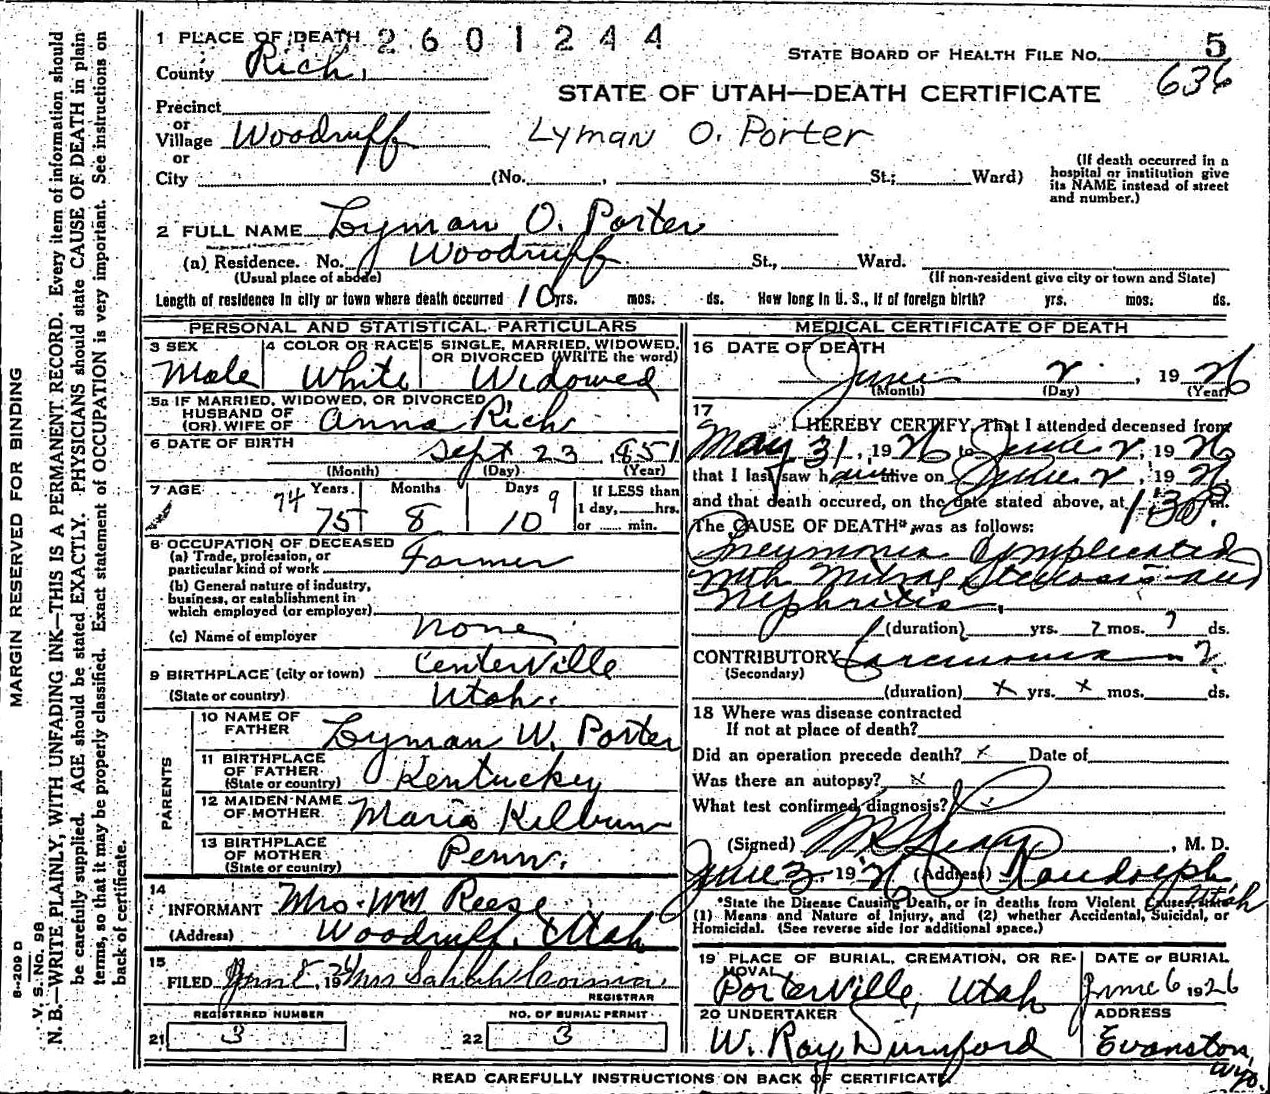 1 PLACE OF DEATH 2601244
STATE BOARD OF HEALTH FILE NO. 5
County Rich.
636
STATE OF UTAH—DEATH CERTIFICATE
Precinct
or
Village Woodruff
Lyman O. Porter
or
City (No. , St.; Ward)
(If death occurred in a hospital or institution give its NAME instead of street and number.)
2 FULL NAME Lyman O. Porter
(a) Residence. No. Woodruff St., Ward.
(Usual place of abode) (If non-resident give city or town and State)
Length of residence in city or town where death occurred 10 yrs. mos. ds. How long in U. S., if of foreign birth? yrs. mos. ds.
PERSONAL AND STATISTICAL PARTICULARS
3 SEX 4 COLOR OR RACE 5 SINGLE, MARRIED, WIDOWED, OR DIVORCED (WRITE the word)
Male White Widowed
5a IF MARRIED, WIDOWED, OR DIVORCED
HUSBAND OF
(OR) WIFE OF Anna Rich
6 DATE OF BIRTH Sept 23 1851
(Month) (Day) (Year)
7 AGE Years Months Days If LESS than
74 75 8 10 9 1 day, hrs.
or min.
8 OCCUPATION OF DECEASED
(a) Trade, profession, or
particular kind of work Farmer
(b) General nature of industry,
business, or establishment in
which employed (or employer)
(c) Name of employer none
9 BIRTHPLACE (city or town) Centerville
(State or country) Utah.
PARENTS
10 NAME OF
FATHER Lyman W. Porter
11 BIRTHPLACE
OF FATHER
(State or country) Kentucky
12 MAIDEN NAME
OF MOTHER Maria Kilburn
13 BIRTHPLACE
OF MOTHER
(State or country) Penn.
14
INFORMANT Mrs. Wm Reese
(Address) Woodruff, Utah
15
FILED 19 Mrs
REGISTRAR
REGISTERED NUMBER NO. OF BURIAL PERMIT
21 3 22 3
MEDICAL CERTIFICATE OF DEATH
16 DATE OF DEATH
June 2, 1926
(Month) (Day) (Year)
17
I HEREBY CERTIFY, That I attended deceased from
May 31, 1926 to June 2, 1926
that I last saw h alive on June 2, 1926
and that death occured, on the date stated above, at 1 30 P. m.
The CAUSE OF DEATH* was as follows:
Pneumonia Complicated
with Mitral Stenosis and
Nephritis.
(duration) yrs. ? mos. ? ds.
CONTRIBUTORY Carcinoma - ?
(Secondary)
(duration) x yrs. x mos. ds.
18 Where was disease contracted
If not at place of death?
Did an operation precede death? x Date of
Was there an autopsy? x
What test confirmed diagnosis?
(Signed) , M. D.
June 3, 1926 (Address) Randolph, Utah
*State the Disease Causing Death, or in deaths from Violent Causes, state
(1) Means and Nature of Injury, and (2) whether Accidental, Suicidal, or
Homicidal. (See reverse side for additional space.)
19 PLACE OF BURIAL, CREMATION, OR REMOVAL DATE OF BURIAL
Porterville, Utah June 6 1926
20 UNDERTAKER ADDRESS
W. Ray Dunford Evanston, Wyo.
READ CAREFULLY INSTRUCTIONS ON BACK OF CERTIFICATE
MARGIN RESERVED FOR BINDING
8-209 D
V. S. No. 98
N. B.—WRITE PLAINLY, WITH UNFADING INK—THIS IS A PERMANENT RECORD. Every item of information should
be carefully supplied. AGE should be stated EXACTLY. PHYSICIANS should state CAUSE OF DEATH in plain
terms, so that it may be properly classified. Exact statement of OCCUPATION is very important. See instructions on
back of certificate.